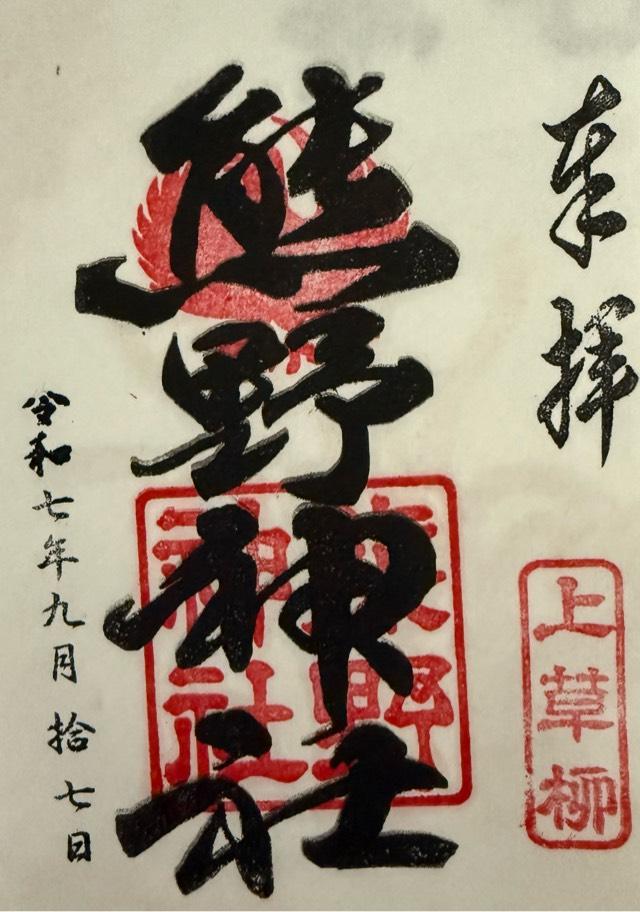 奉拝
上草柳
熊野神社
熊野
神社
令和七年九月拾七日